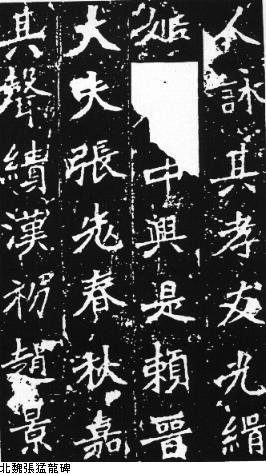 人詠其孝友光緝
姬中興是賴晉
大夫張老春秋嘉
其聲績漢初趙景
北魏張猛龍碑